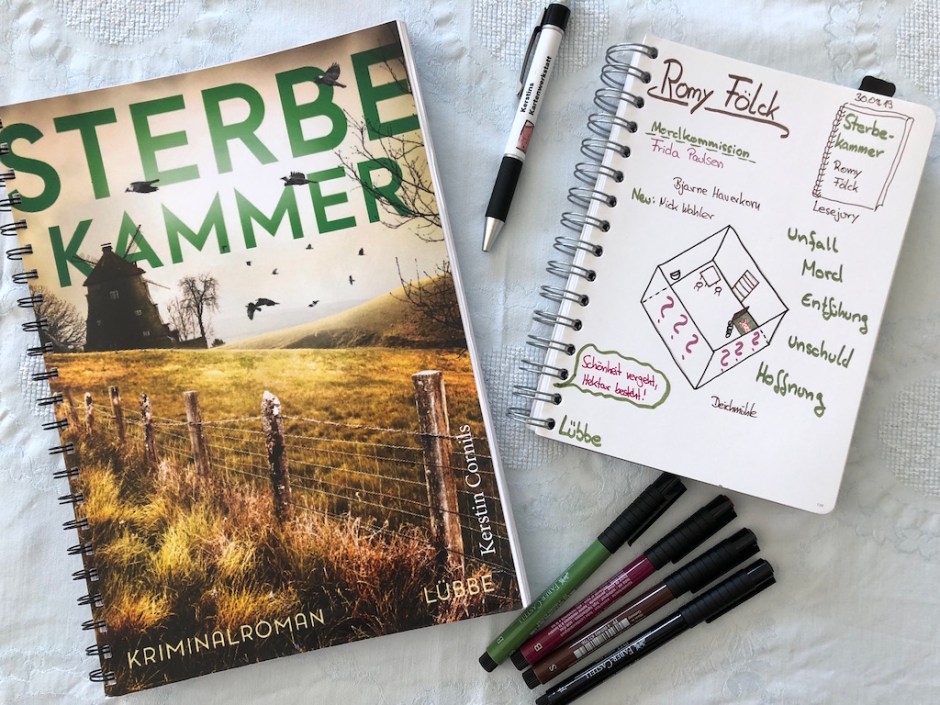 STERBE
KAMMER
Kerstin Cornils
LÜBBE
KRIMINALROMAN
Kerstins
Kartenwerkstatt
Romy Fölck
Mordkommission
Frida Paulsen
Bjarne Haverkorn
Neu: Nick Wahler
30.09.19
Sterbe-
kammer
Romy
Fölck
Lesejory
Unfall
Mord
Entführung
Unschuld
Hoffnung
? ? ?
? ? ?
Schönheit vergeht,
Hektar besteht!
Deichmühle
Lübbe
FABER-CASTELL
B
S
FABER-CASTELL